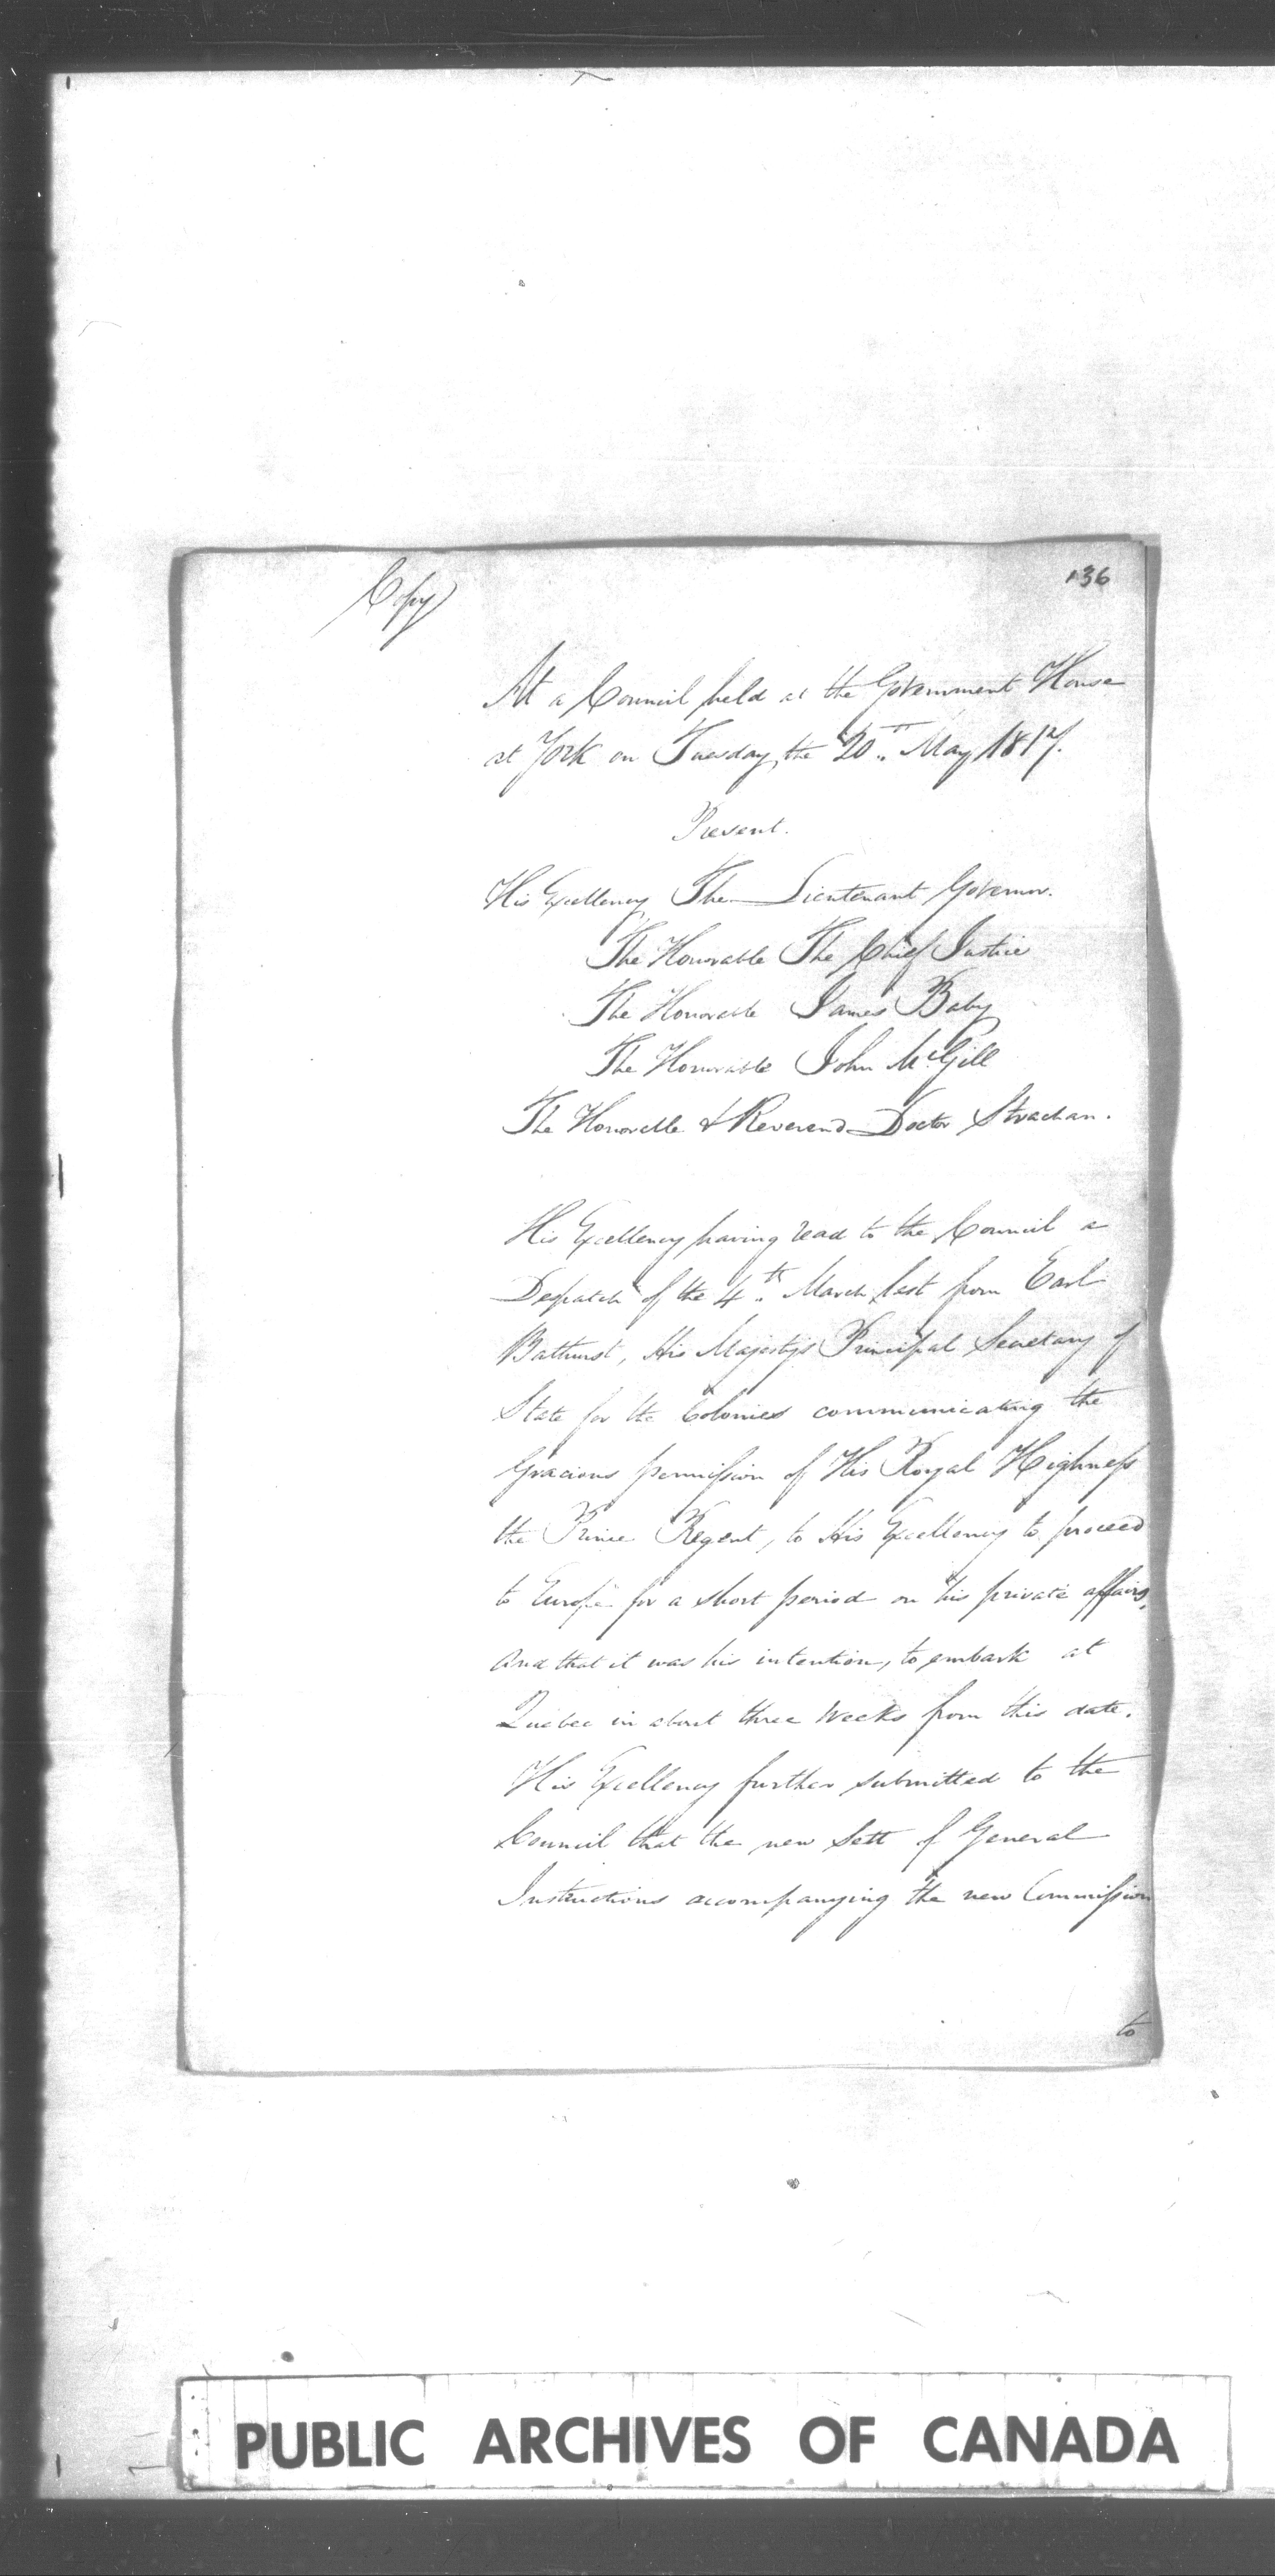 Copy
136
At a Council held at the Government House
at York on Tuesday the 20th May 1817.
Present.
His Excellency The Lieutenant Governor.
The Honorable The Chief Justice
The Honorable James Baby
The Honorable John McGill
The Honorable & Reverend Doctor Strachan.
His Excellency having read to the Council a
Despatch of the 4th March last from Earl
Bathurst, His Majesty's Principal Secretary of
State for the Colonies communicating the
Gracious permission of His Royal Highness
the Prince Regent, to His Excellency to proceed
to Europe for a short period on his private affairs,
and that it was his intention, to embark at
Quebec in about three Weeks from this date.
His Excellency further submitted to the
Council that the new Sett of General
Instructions accompanying the new Commission
to
PUBLIC ARCHIVES OF CANADA